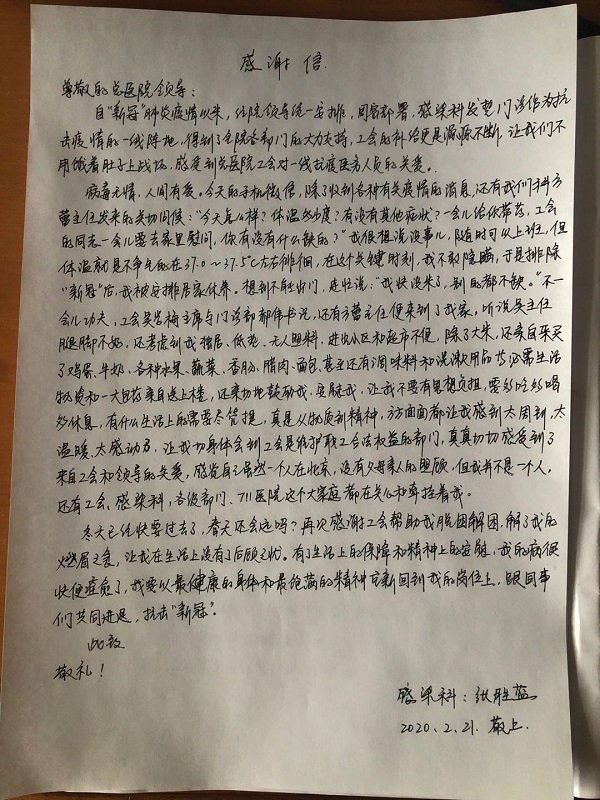 感谢信
尊敬的总医院领导：
自“新冠”肺炎疫情以来，经院领导统一安排，周密部署，感染科发热门诊作为抗
击疫情的一线阵地，得到了全院各部门的大力支持，工会的补给更是源源不断，让我们不
用饿着肚子上战场，感受到总医院工会对一线抗疫医务人员的关爱。
病毒无情，人间有爱。今天的手机微信，除了收到各种有关疫情的消息，还有我们科方
蕾主任发来的关切问候：“今天怎么样？体温多少度？有没有其他症状？一会儿给你带药，工会
的同志一会儿要去家里慰问，你有没有什么缺的？”我很想说没事儿，随时可以上班，但
体温就是不争气的在37.0～37.5℃左右徘徊，在这个关键时刻，我不敢隐瞒，于是排除
“新冠”后，我被安排居家休养。想到不能出门，赶快说：“我快没米了，别的都不缺。”不一
会儿功夫，工会吴 梅主席与门诊部郝伟书记，还有方蕾主任便来到了我家，听说吴主任
腿脚不好，还考虑到我独居、低热、无人照料，进出小区和超市不便，除了大米，还亲自采买
了鸡蛋、牛奶、各种水果、蔬菜、香肠、腊肉、面包，甚至还有调味料和洗漱用品等必需生活
物资和一大包药亲自送上楼，还亲切地鼓励我、安慰我，让我不要有思想负担，要多吃多喝
多休息，有什么生活上的需要尽管提，真是从物质到精神，方方面面都让我感到太周到、太
温暖、太感动了，让我切身体会到工会是维护职工合法权益的部门，真真切切感受到了
来自工会和领导的关爱，感觉自己虽然一个人在北京，没有父母亲人的照顾，但我并不是一个人，
还有工会、感染科、各级部门、711医院这个大家庭都在关心和牵挂着我。
冬天已经快要过去了，春天还会远吗？再次感谢工会帮助我脱困解困，解了我的
燃眉之急，让我在生活上没有了后顾之忧。有了生活上的保障和精神上的安慰，我的病很
快便痊愈了，我要以最健康的身体和最饱满的精神重新回到我的岗位上，跟同事
们共同进退，抗击“新冠”。
此致
敬礼！
感染科：张胜蓝
2020.2.21. 敬上